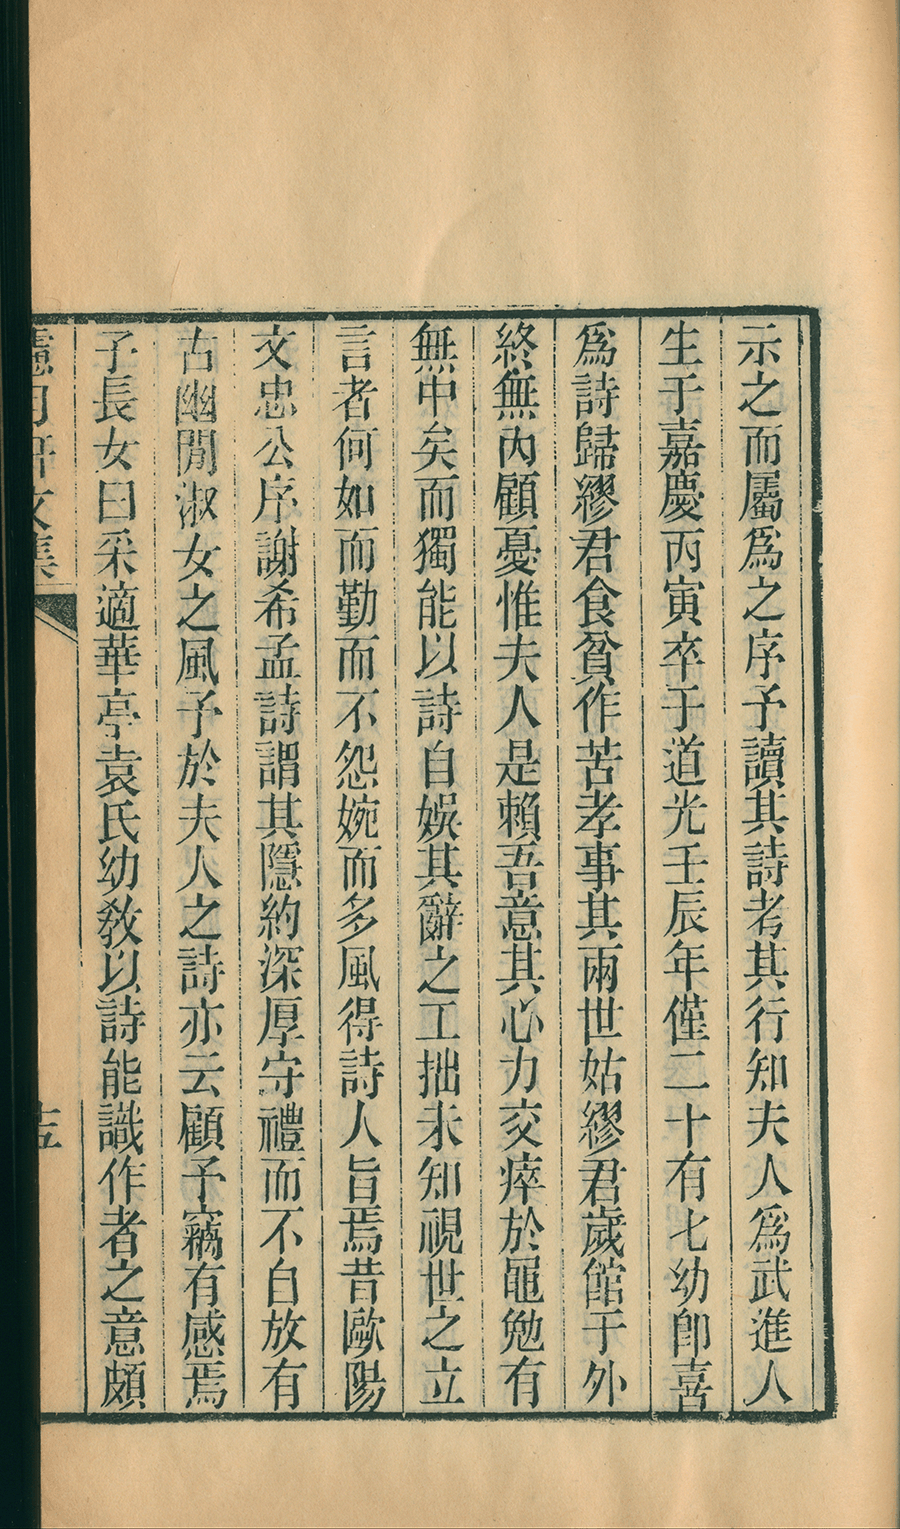 示之而屬爲之序予讀其詩考其行知夫人爲武進人
生于嘉慶丙寅卒于道光壬辰年僅二十有七幼卽喜
爲詩歸繆君食貧作苦孝事其兩世姑繆君歲館于外
終無內顧憂惟夫人是賴吾意其心力交瘁於黽勉有
無中矣而獨能以詩自娛其辭之工拙未知視世之立
言者何如而勤而不怨婉而多風得詩人旨焉昔歐陽
文忠公序謝希孟詩謂其隱約深厚守禮而不自放有
古幽閒淑女之風予於夫人之詩亦云顧予竊有感焉
子長女曰采適華亭袁氏幼敎以詩能識作者之意頗
文集